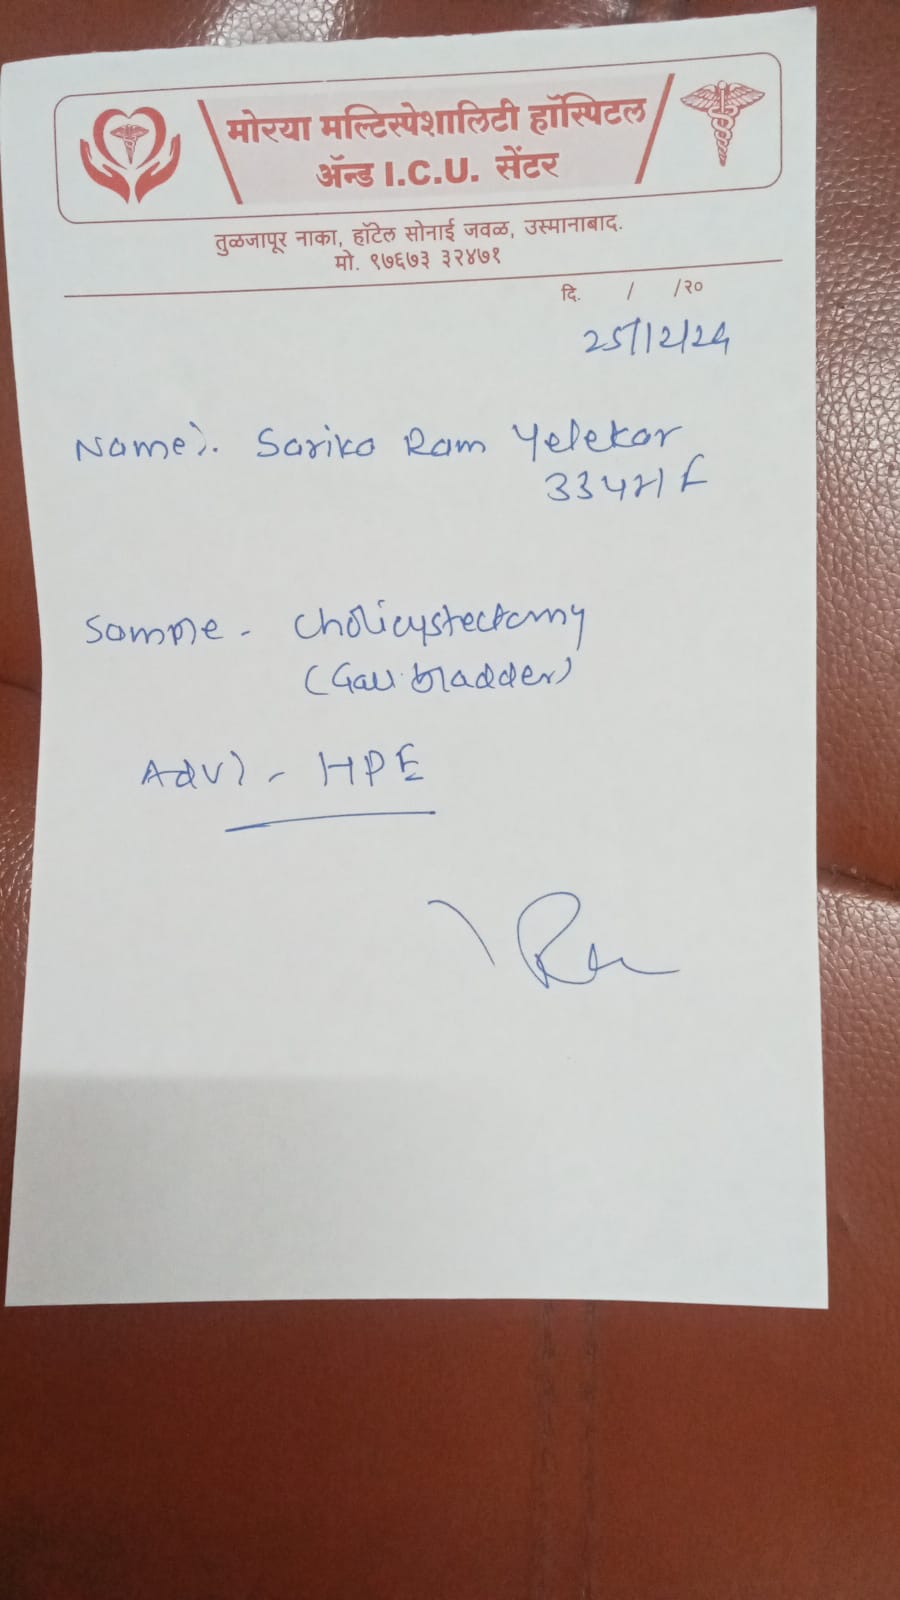 मोरया मल्टिस्पेशालिटी हॉस्पिटल
ॲन्ड I.C.U. सेंटर
तुळजापूर नाका, हॉटेल सोनाई जवळ, उस्मानाबाद.
मो. ९७६७३ ३२४७१
दि. / /२०
25/12/24
Name:. Sarika Ram Yelekar
33Yr/F
Sample - Cholicystectomy
(Gall bladder)
Adv:- HPE